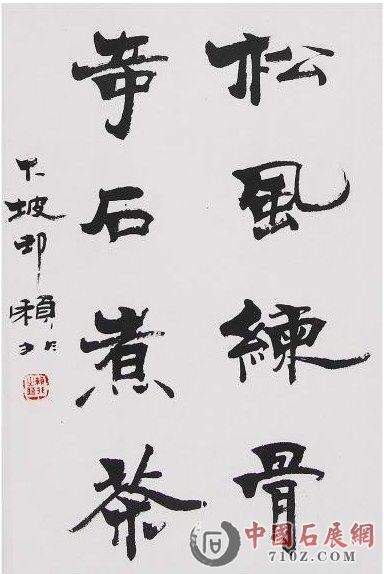 松風練骨
奇石煮茶
坡邨賴
中國石展網
710Z.COM